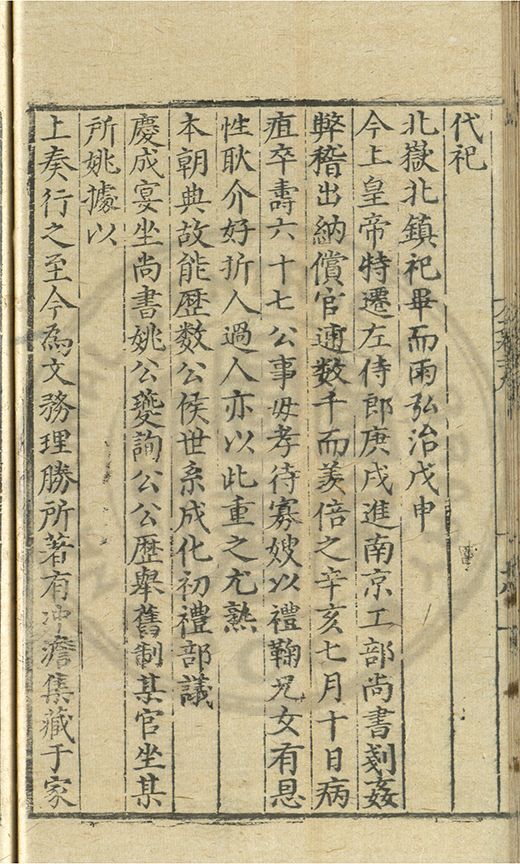 代祀
北嶽北鎮祀畢而雨弘治戊申
今上皇帝特遷左侍郎庚戌進南京工部尚書剗姦
弊稽出納償官逋數千而羨倍之辛亥七月十日病
疽卒壽六十七公事毋孝待寡嫂以禮鞠兄女有恩
性耿介好折人過人亦以此重之尤熟
本朝典故能歷数公侯世系成化初禮部議
慶成宴坐尚書姚公夔詢公公歷舉舊制某官坐某
所姚據以
上奏行之至今為文務理勝所著有冲澹集藏于家